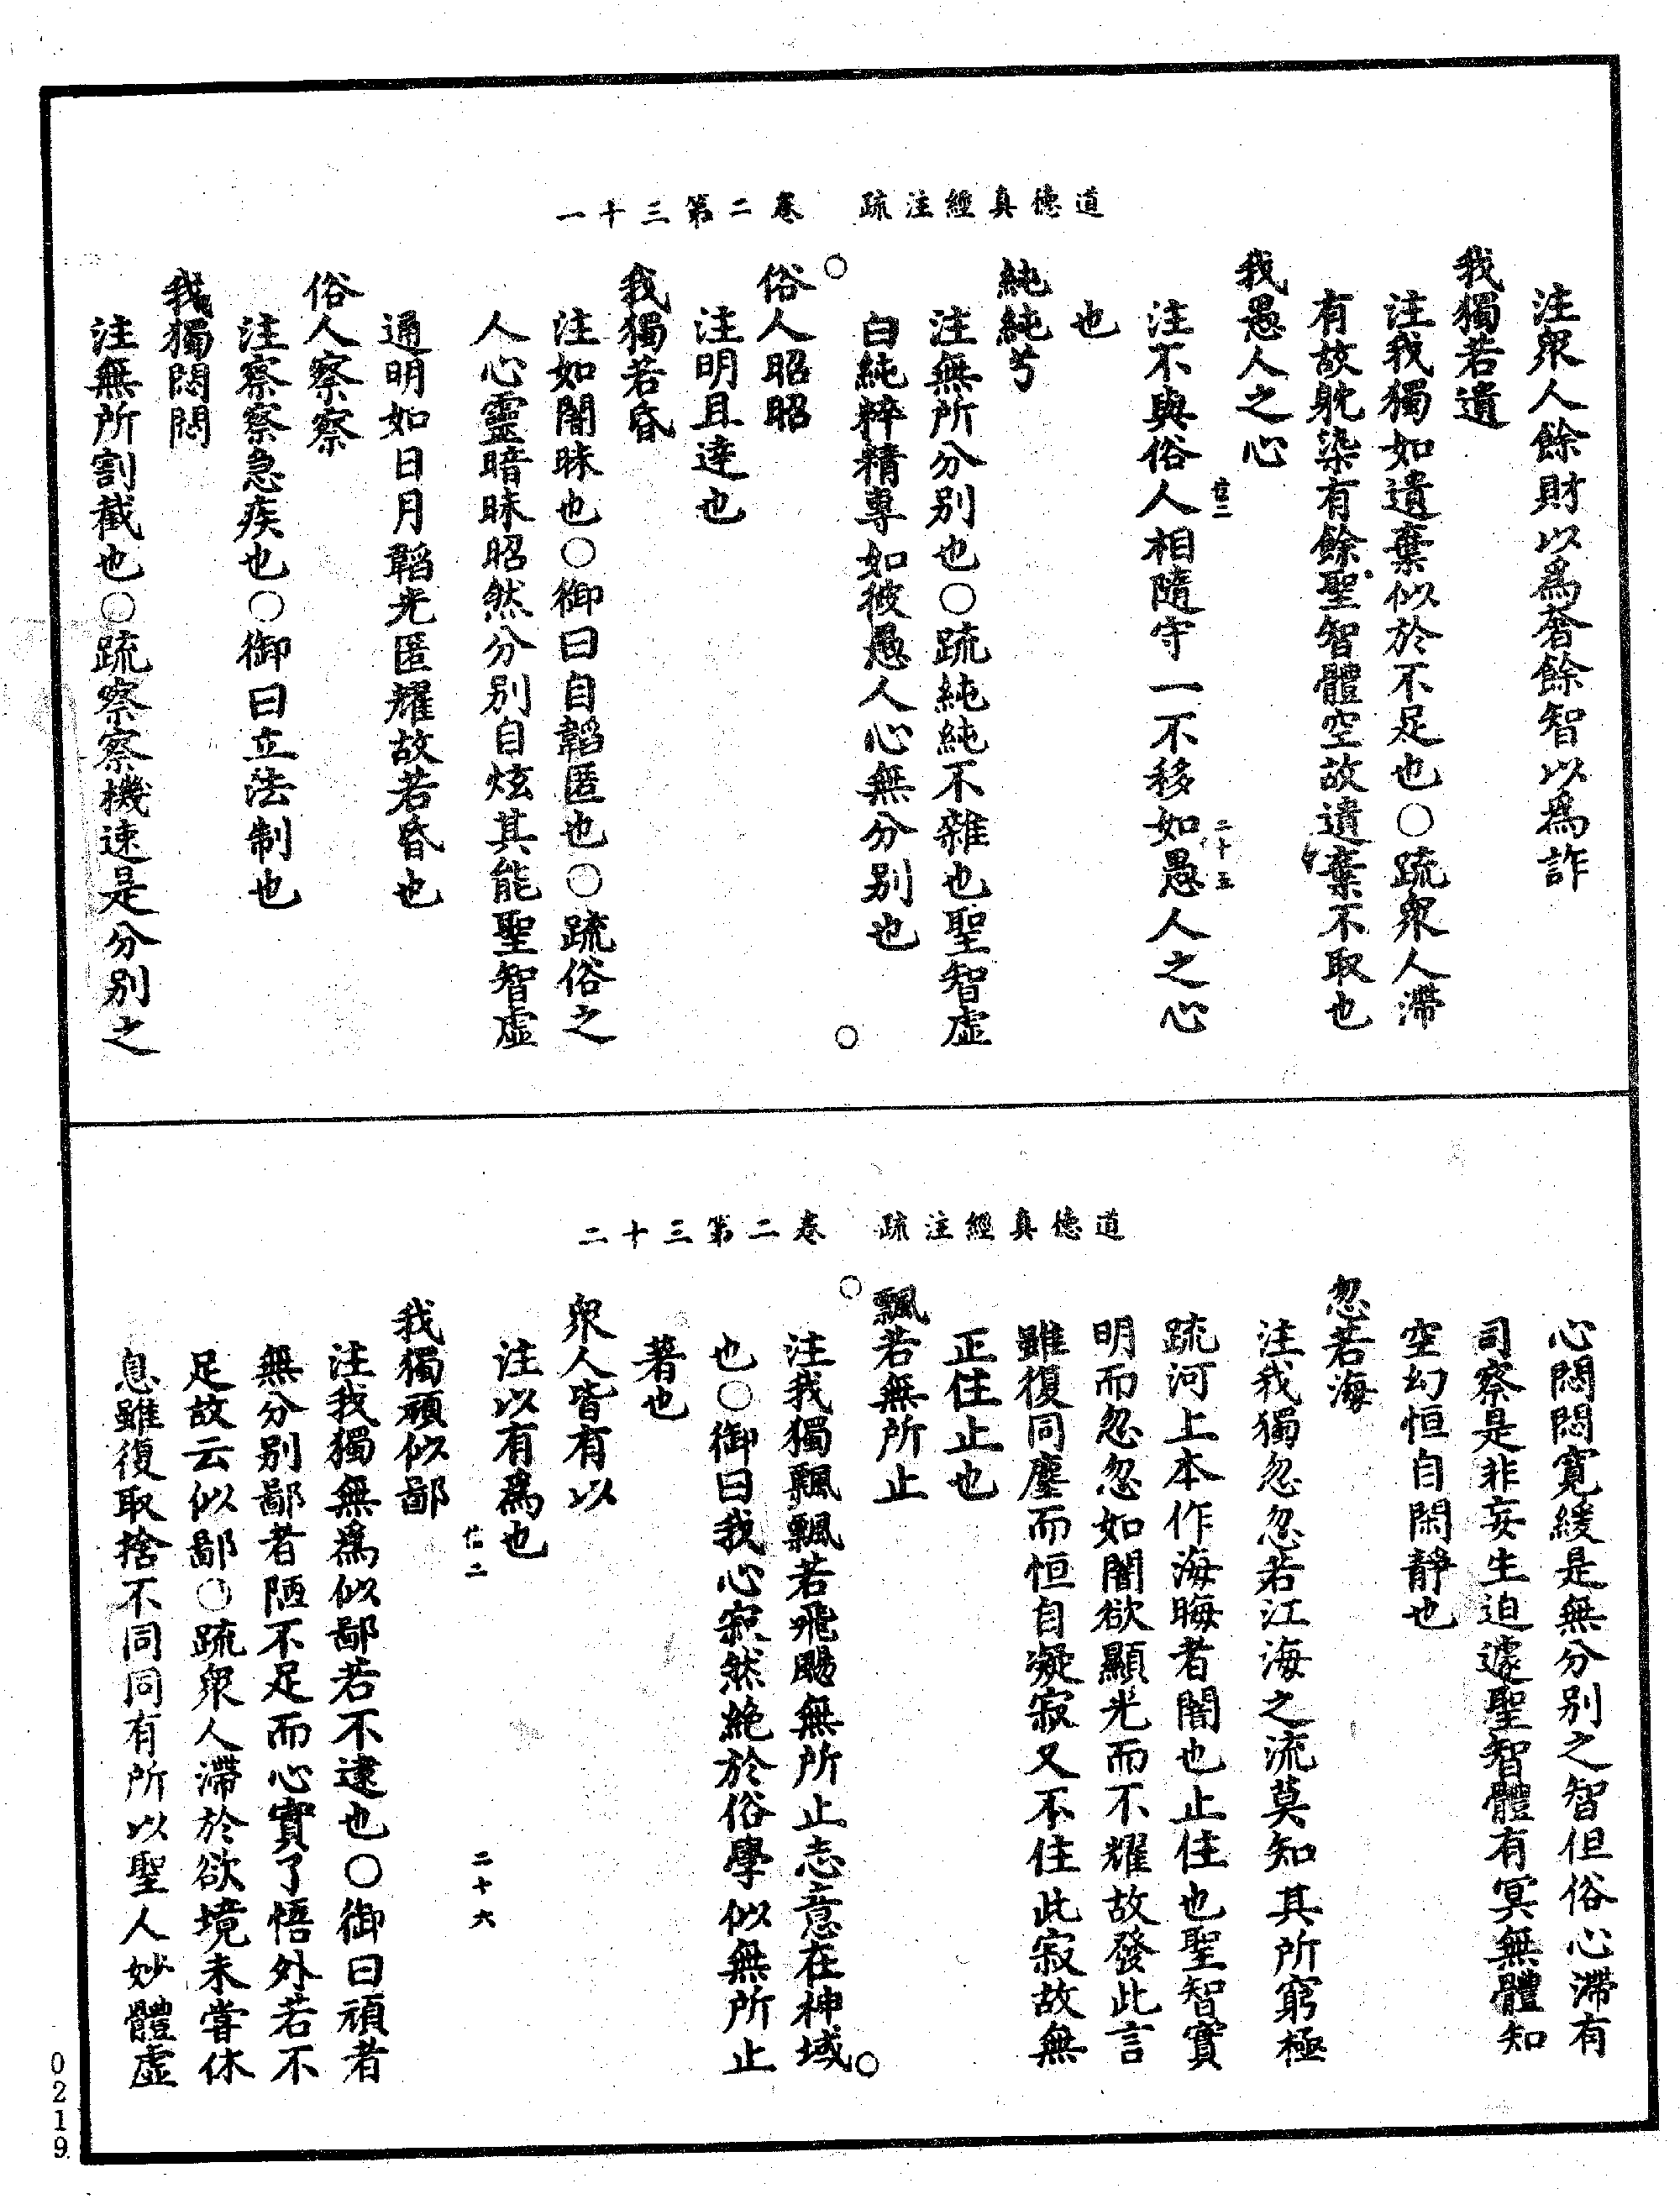 道德真經注疏　卷二第三十一
注衆人餘財以爲奢餘智以爲詐
我獨若遺
注我獨如遺棄似於不足也○疏衆人滯
有故躭染有餘聖智體空故遺棄不取也
我愚人之心
注不與俗人相隨守一不移如愚人之心
二十五
也
純純兮
注無所分别也○疏純純不雜也聖智虛
白純粹精專如彼愚人心無分别也
○
○
俗人昭昭
注明且達也
我獨若昏
注如闇昧也○御曰自韜匿也○疏俗之
人心靈暗昧昭然分别自炫其能聖智虛
通明如日月韜光匿耀故若昏也
俗人察察
注察察急疾也○御曰立法制也
我獨悶悶
注無所割截也○疏察察機速是分别之
道德真經注疏　卷二第三十二
心悶悶寛緩是無分别之智但俗心滯有
司察是非妄生迫遽聖智體有冥無體知
空幻恒自閑靜也
忽若海
注我獨忽忽若江海之流莫知其所窮極
疏河上本作海晦者闇也止住也聖智實
明而忽忽如闇欲顯光而不耀故發此言
雖復同塵而恒自凝寂又不住此寂故無
正住止也
飄若無所止
○
注我獨飄飄若飛颺無所止志意在神域
○
也○御曰我心寂然絶於俗學似無所止
著也
衆人皆有以
注以有爲也
信二　二十六
我獨頑似鄙
注我獨無爲似鄙若不逮也○御曰頑者
無分别鄙者陋不足而心實了悟外若不
足故云似鄙○疏衆人滯於欲境未嘗休
息雖復取捨不同同有所以聖人妙體虛
0219